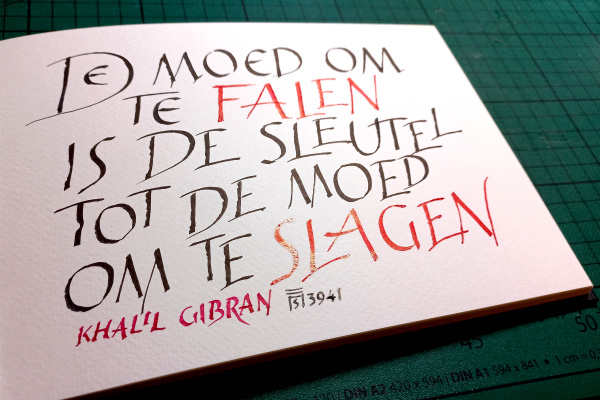 DE MOED OM
TE FALEN
IS DE SLEUTEL
TOT DE MOED
OM TE SLAGEN
KHALIL GIBRAN 3941
45
50
DIN A2 420 x 594 | DIN A1 594 x 841 • 1 cm =